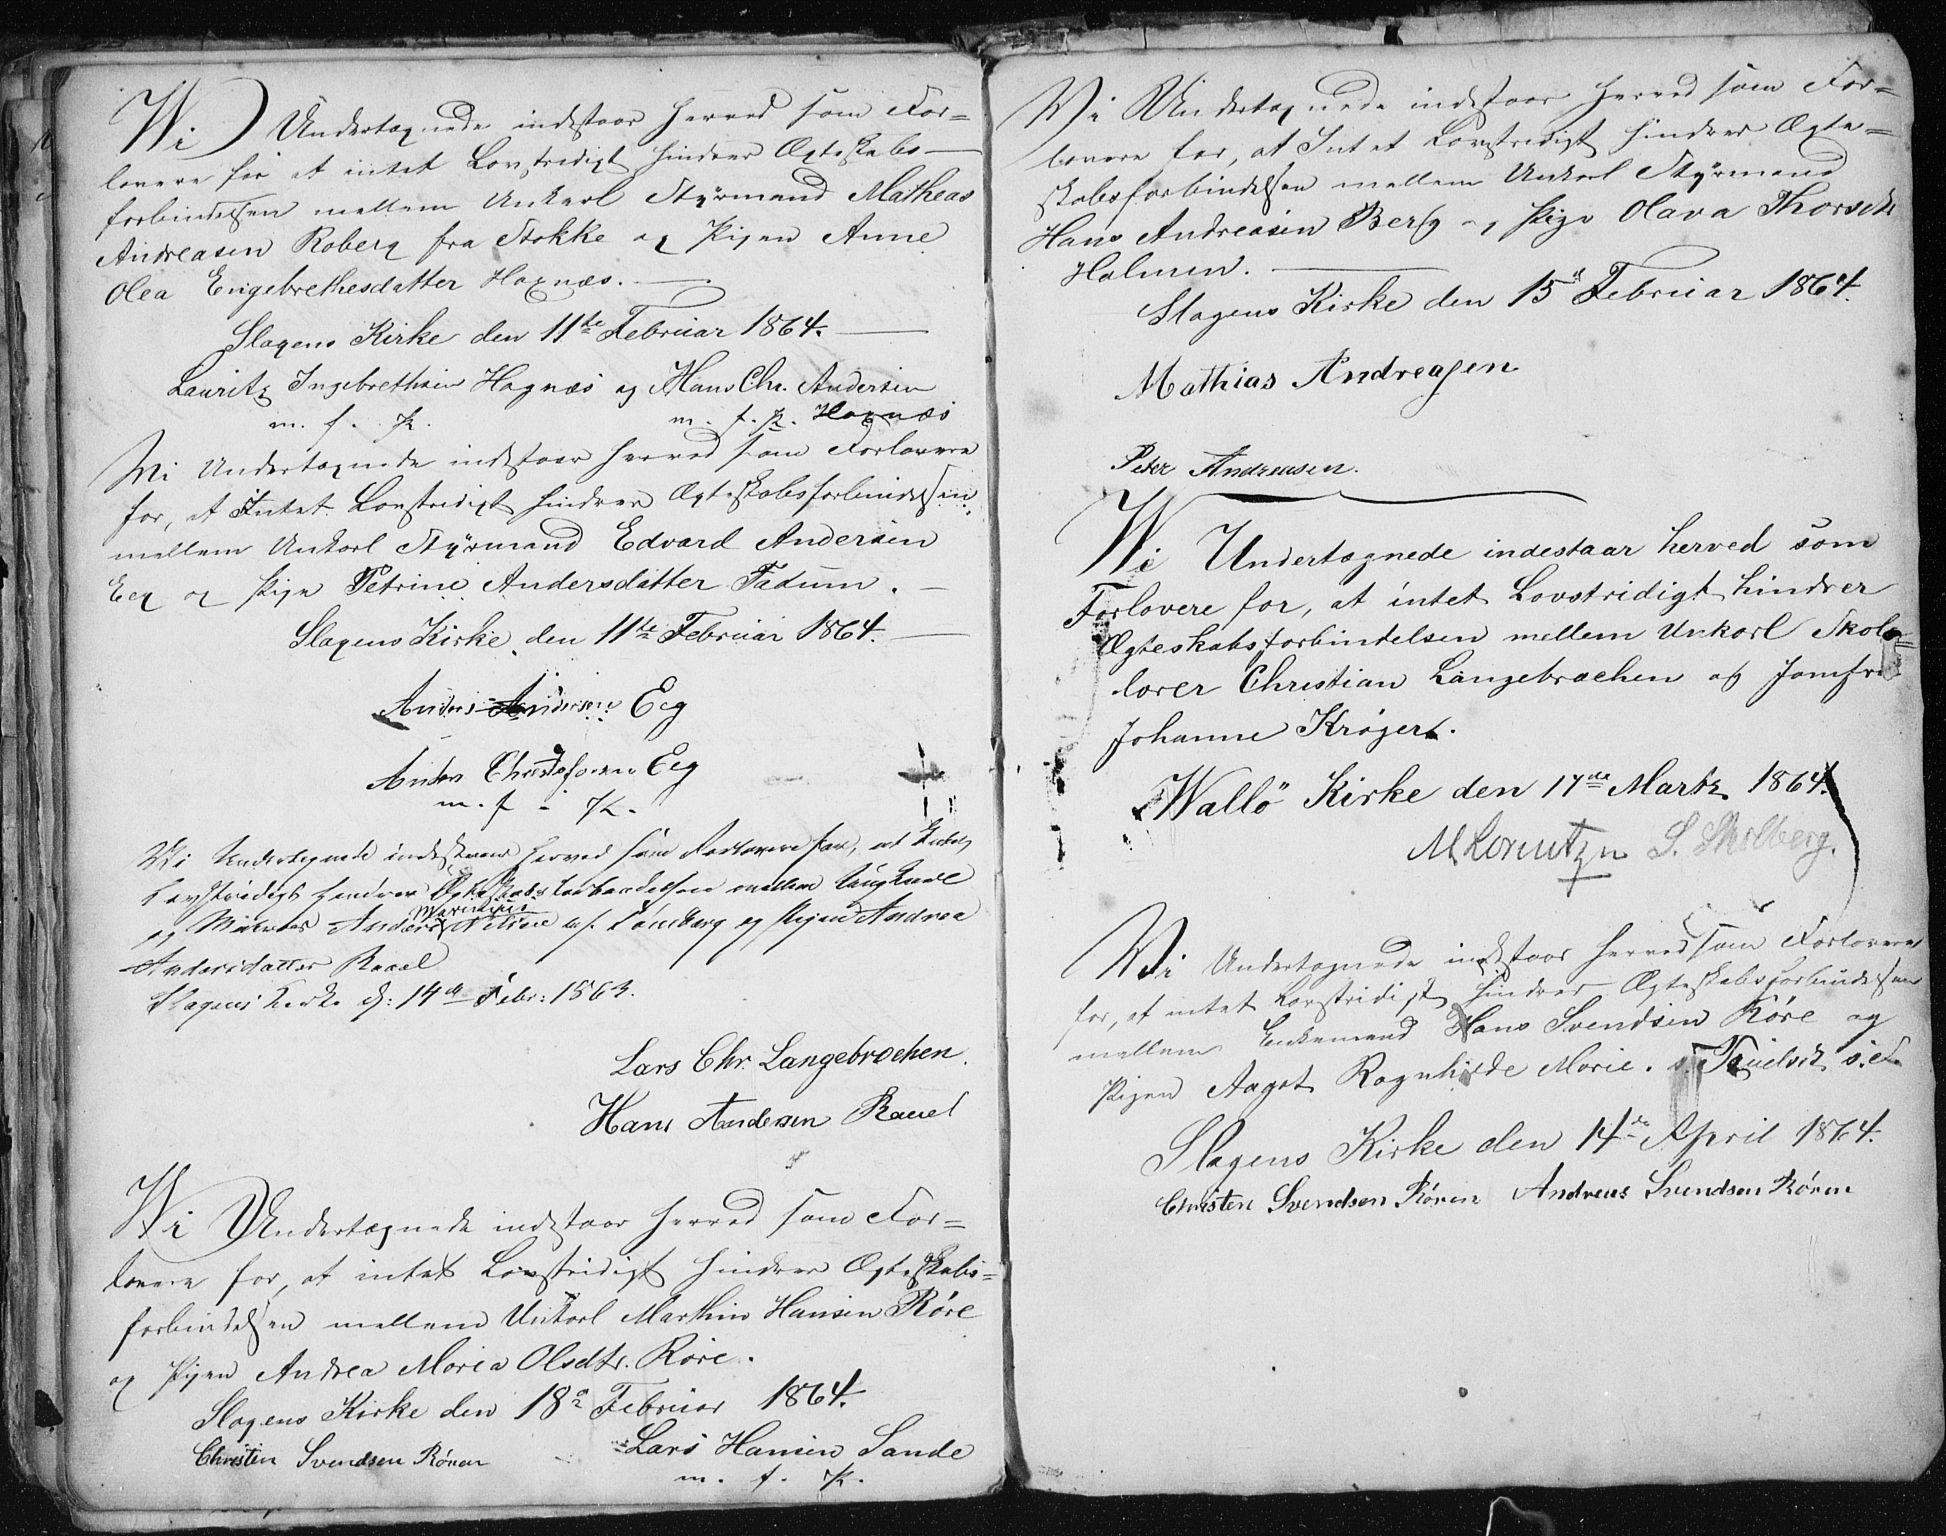 Wi Undertegnede indestaar herved som For=
lovere for at intet Lovstridigt hindrer Ægteskabs
forbindelsen mellem Unkarl Styrmand Matheas
Andreasen Roberg fra Stokke og Pigen Anne
Olea Engebrethesdatter Hognæs.
Slagens Kirke den 11te Februar 1864.
Lauritz Ingebrethsen Hognæs og Hans Chr. Andersen
m. f. P. m. f. P. Hognæs
Wi Undertegnede indestaar herved som Forlovere
for, at Intet Lovstridigt hindrer Ægteskabsforbindelsen
mellem Unkarl Styrmand Edvard Andersen
Eeg og Pige Petrine Andersdatter Fadum.
Slagens Kirke den 11te Februar 1864.
Anders Andersen Eeg
Anders Christofersen Eeg
m. f. P.
Wi Undertegnede indestaar herved som Forlovere for, at Intet
Lovstridigt hindrer Ægteskabsforbindelsen mellem Ungkarl
Marinius
og Anders Nilsen af Tønsberg og Pigen Andrea
Andersdatter Raael
Slagens Kirke d: 14de Febr: 1864.
Lars Chr. Langebrochen.
Hans Andersen Rauel
Wi Undertegnede indestaar herved som For=
lovere for, at intet Lovstridigt hindrer Ægteskabs=
forbindelsen mellem Unkarl Marthin Hansen Røre
og Pigen Andrea Maria Olsdtr. Røre.
Slagens Kirke den 18de Februar 1864.
Christen Svendsen Røren Lars Hansen Sande
m. f. P.
Wi Undertegnede indestaar herved som For=
lovere for, at Intet Lovstridigt hindrer Ægte=
skabsforbindelsen mellem Unkarl Styrmand
Hans Andreasen Berg og Pige Olava Thorsdtr
Holmen.
Slagens Kirke den 15de Februar 1864.
Mathias Andreasen
Peter Andreasen.
Wi Undertegnede indestaar herved som
Forlovere for, at intet Lovstridigt hindrer
Ægteskabsforbindelsen mellem Unkarl Skole=
lærer Christian Langebrochen og Jomfru
Johanne Krøger.
Wallö Kirke den 17de Martz 1864.
M Lorentzen S. Skolberg.
Wi Undertegnede indestaar herved som Forlovere
for, at intet Lovstridigt hindrer Ægteskabsforbindelsen
mellem Enkemand Hans Svendsen Røre og
Pigen Aagot Ragnhilde Marie
Slagens Kirke den 14de April 1864.
Christen Svendsen Røren Andreas Svendsen Røren